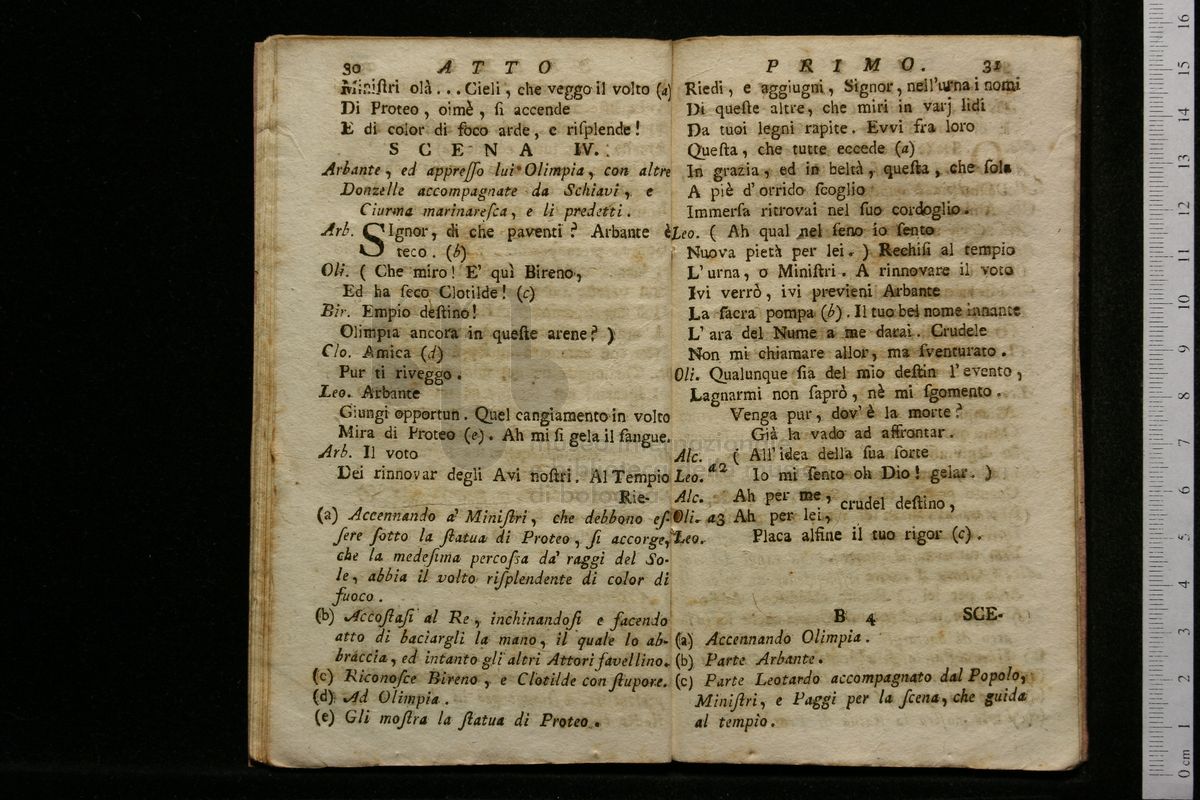 30 ATTO
Miniſtri olà... Cieli, che veggo il volto (a)
Di Proteo, oimè, ſi accende
E di color di foco arde, e riſplende!
SCENA IV.
Arbante, ed appreſſo lui Olimpia, con altre
Donzelle accompagnate da Schiavi, e
Ciurma marinareſca, e li predetti.
Arb. SIgnor, di che paventi? Arbante è
teco. (b)
Oli. ( Che miro! E' quì Bireno,
Ed ha ſeco Clotilde! (c)
Bir. Empio deſtino!
Olimpia ancora in queſte arene? )
Clo. Amica (d)
Pur ti riveggo.
Leo. Arbante
Giungi opportun. Quel cangiamento in volto
Mira di Proteo (e). Ah mi ſi gela il ſangue.
Arb. Il voto
Dei rinnovar degli Avi noſtri. Al Tempio
Rie-
(a) Accennando a' Miniſtri, che debbono eſ-
ſere ſotto la ſtatua di Proteo, ſi accorge,
che la medeſima percoſsa da' raggi del So-
le, abbia il volto riſplendente di color di
fuoco.
(b) Accoſtaſi al Re, inchinandoſi e facendo
atto di baciargli la mano, il quale lo ab-
braccia, ed intanto gli altri Attori favellino.
(c) Riconoſce Bireno, e Clotilde con ſtupore.
(d) Ad Olimpia.
(e) Gli moſtra la ſtatua di Proteo.
PRIMO. 31
Riedi, e aggiugni, Signor, nell'urna i nomi
Di queſte altre, che miri in varj lidi
Da tuoi legni rapite. Evvi fra loro
Queſta, che tutte eccede (a)
In grazia, ed in beltà, queſta, che ſola
A piè d'orrido ſcoglio
Immerſa ritrovai nel ſuo cordoglio.
Leo. ( Ah qual nel ſeno io ſento
Nuova pietà per lei. ) Rechiſi al tempio
L'urna, o Miniſtri. A rinnovare il voto
Ivi verrò, ivi previeni Arbante
La ſacra pompa (b). Il tuo bel nome innante
L'ara del Nume a me darai. Crudele
Non mi chiamare allor, ma ſventurato.
Oli. Qualunque ſia del mio deſtin l'evento,
Lagnarmi non ſaprò, nè mi ſgomento.
Venga pur, dov'è la morte?
Già la vado ad affrontar.
Alc. ( All'idea della ſua ſorte
Leo. a2 Io mi ſento oh Dio! gelar. )
Alc. Ah per me, crudel deſtino,
Oli. a3 Ah per lei,
Leo. Placa alfine il tuo rigor (c).
B 4 SCE-
(a) Accennando Olimpia.
(b) Parte Arbante.
(c) Parte Leotardo accompagnato dal Popolo,
Miniſtri, e Paggi per la ſcena, che guida
al tempio.